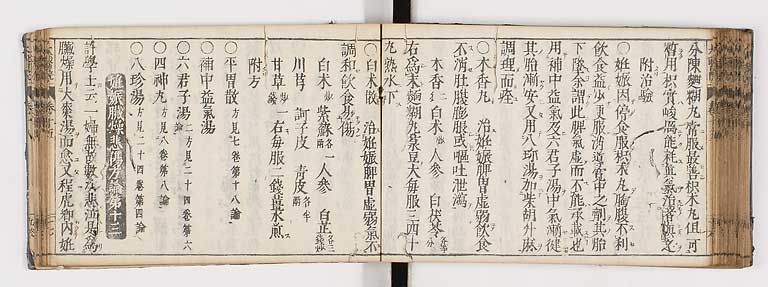 分陳麹糊丸常服最善枳朮丸但可
暫用枳實峻厲能耗眞氣治者愼之
附治驗
○一妊娠因停食服枳朮丸胸腹不利
飲食益少更服消導寬中之劑其胎
下墜余謂此脾氣虛而不能承載也
用補中益氣及六君子湯中氣漸健
其胎漸安又用八珍湯加柴胡升麻
調理而痊
○木香丸 治妊娠脾胃虛弱飲食
不消肚腹膨脹或嘔吐泄瀉
木香 白朮炒 人參 白茯苓
右爲末麺糊丸菉豆大每服三四十
丸熟水下
○白朮散 治妊娠脾胃虛弱氣不
調和飲食易傷
白朮炒 紫蘇 人參 白芷
川芎 訶子皮 青皮
甘草 右每服二錢薑水煎
附方
○平胃散 方見七卷第十八論
○補中益氣湯
○六君子湯 二方見二十四卷第六論
○四神丸 方見八卷第八論
○八珍湯 方見二十四卷第四論
妊娠臟燥悲傷方論第十三
許學士云一婦無故數次悲泣是爲
臟燥用大棗湯而愈又程虎卿內妊